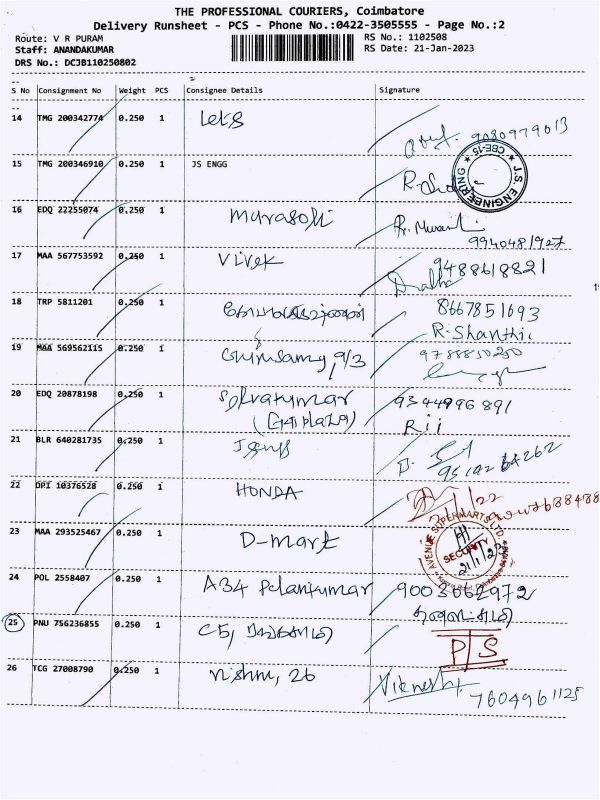 THE PROFESSIONAL COURIERS, Coimbatore
Delivery Runsheet - PCS - Phone No.:0422-3505555 - Page No.:2
Route: V R PURAM RS No.: 1102508
Staff: ANANDAKUMAR RS Date: 21-Jan-2023
DRS No.: DCJB110250802
S No Consignment No Weight PCS Consignee Details Signature
14 TMG 200342774 0.250 1 9080979013
15 TMG 200346910 0.250 1 JS ENGG J.S. ENGINEERING CBE-15
16 EDQ 22255074 0.250 1 Murasoli
9940481927
17 MAA 567753592 0.250 1 Vivek 9488618821
18 TRP 5811201 0.250 1 8667851693
R. Shanthi
19 MAA 569562115 0.250 1 9/3
20 EDQ 20878198 0.250 1 Selvakumar 9344996891
21 BLR 640281735 0.250 1
22 DPI 10376528 0.250 1 HONDA
23 MAA 293525467 0.250 1 D-mart AVENUE SUPERMARTS LTD SECURITY
24 POL 2558407 0.250 1 A34 9003662972
25 PNU 756236855 0.250 1 C5, P S
26 TCG 27008790 0.250 1 26 Vignesh
7604961125